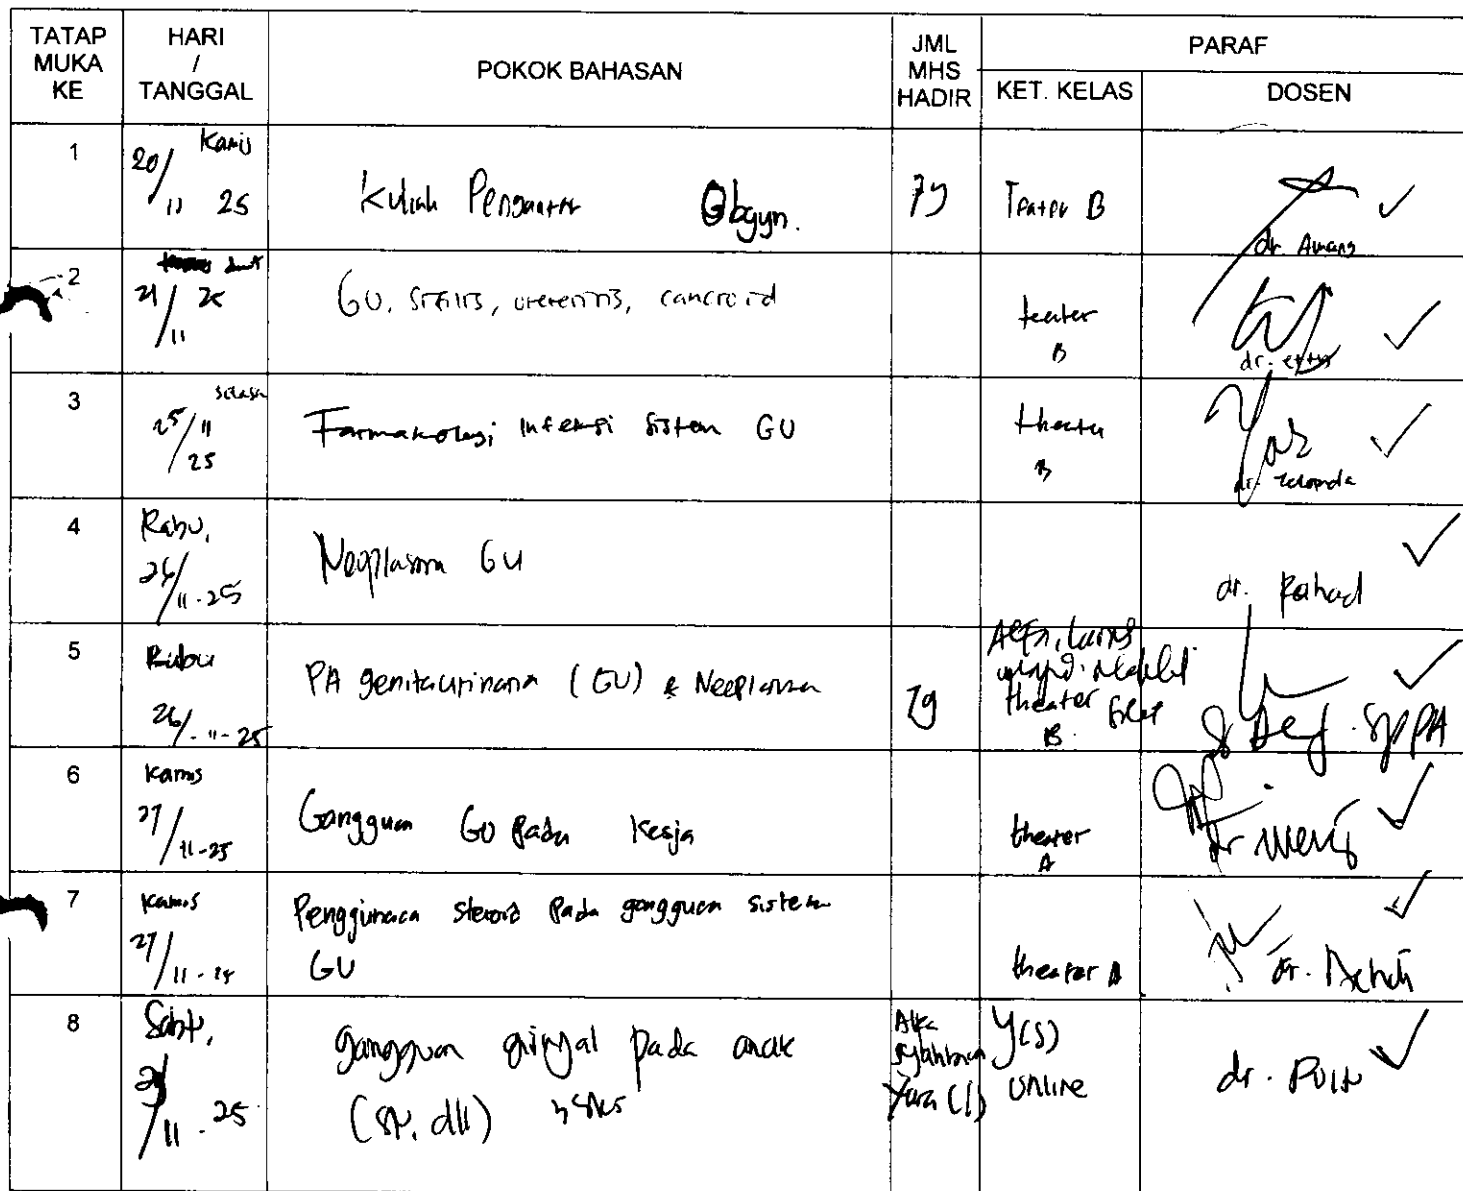 TATAP MUKA KE
HARI / TANGGAL
POKOK BAHASAN
JML MHS HADIR
PARAF
KET. KELAS
DOSEN
1
Kamis
20/11 25
Kuliah Pengantar Obgyn.
79
Teater B
dr. Awang
2
21/11 25
GU, sistitis, ureteritis, cancroid
teater B
dr.
3
Selasa
25/11/25
Farmakologi infeksi sistem GU
theater B
dr.
4
Rabu,
26/11-25
Neoplasma GU
dr.
5
Rabu
26/-11-25
PA genitaurinaria (GU) & Neoplasma
79
theater B.
SpPA
6
Kamis
27/11-25
Gangguan GU Pada Kerja
theater A
dr
7
Kamis
27/11-25
Penggunaan steroid Pada gangguan sistem
GU
theater A
dr.
8
Sabtu,
11.25
gangguan ginjal pada anak
(SN, dll)
online
dr.